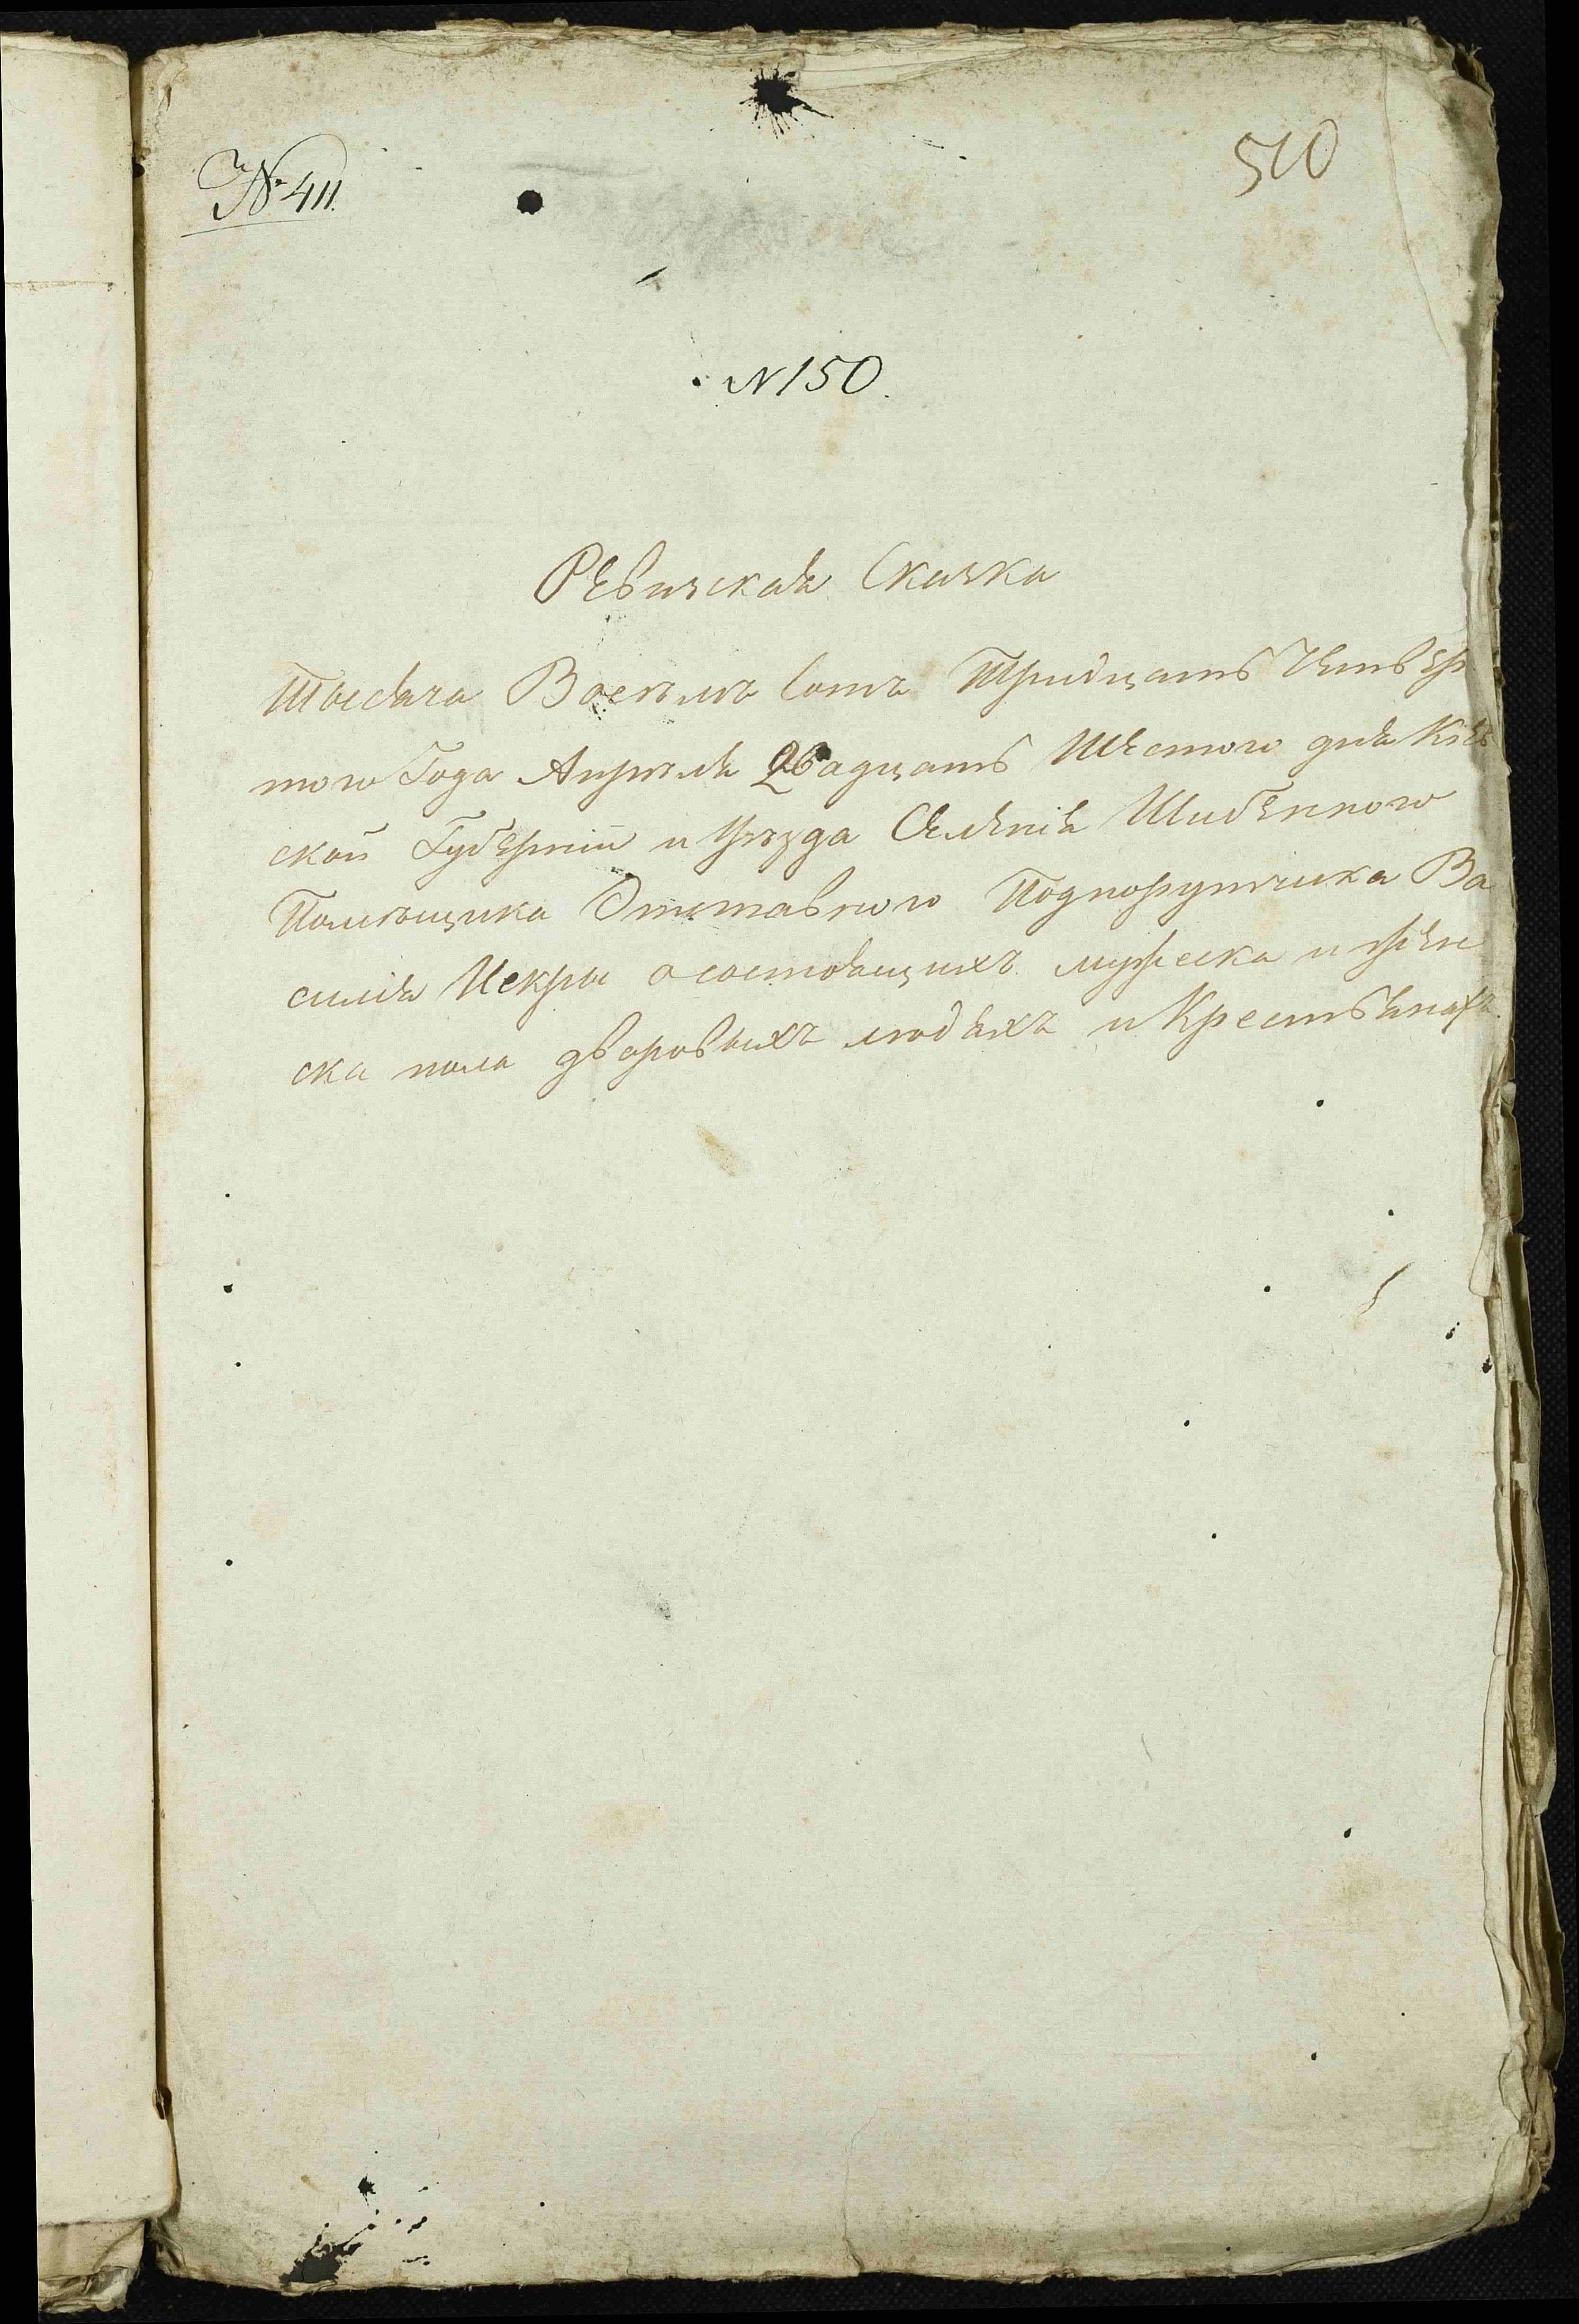 № 411.
510
N 150.
Ревизская Сказка
Тысяча Восемъ Сотъ Тридцать Четвер
того Года Апреля Двадцать Шестого дня Кіев
ской Губерніи и уезда Селенія Шибенного
Помещика Отставного Подпорутчика Ва
силія Искры о состоящихъ мужеска и жен
ска пола дворовыхъ людяхъ и Крестьянахъ.